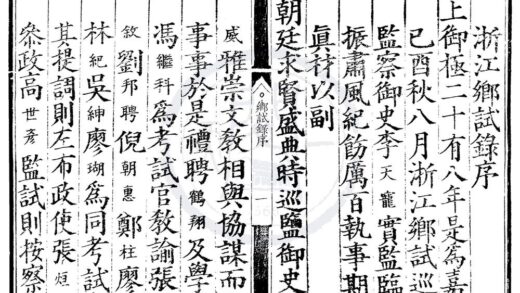 浙江鄉試錄序
上御極二十有八年是爲嘉
己酉秋八月浙江鄉試巡
監察御史李天寵實監臨
振肅風紀飭厲百執事期
眞材以副
朝廷求賢盛典時巡鹽御史
鄉試錄序 一
威雅崇文教相與協謀而
事事於是禮聘鶴翔及學
馮繼科爲考試官教諭張
敘劉邦聘倪朝惠鄭柱廖
林紀吳紳廖瑚爲同考試
其提調則左布政使張烜
叅政高世彥監試則按察